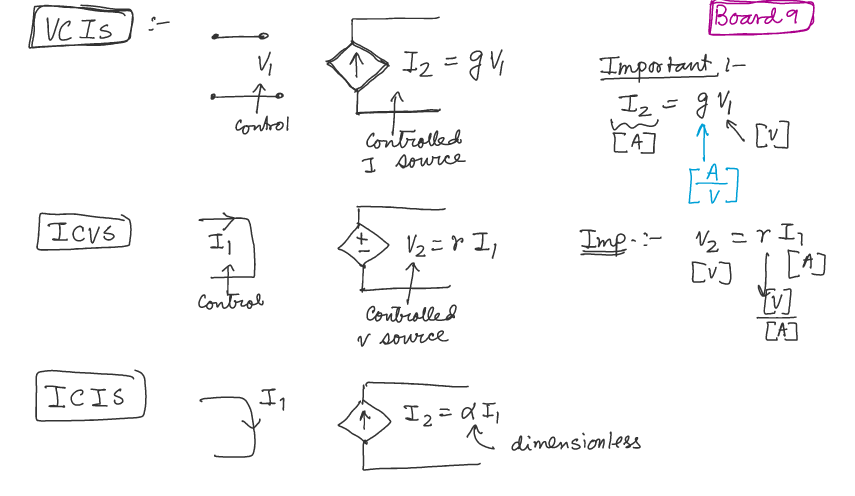 Board 9
VCIs :-
V₁
control
I₂ = gV₁
Controlled
I source
Important :-
I₂ = gV₁
[A]
[V]
[A/V]
ICVS
I₁
Control
±
V₂ = r I₁
Controlled
V source
Imp. :-
V₂ = r I₁
[V]
[A]
[V]
[A]
ICIS
I₁
I₂ = αI₁
dimensionless